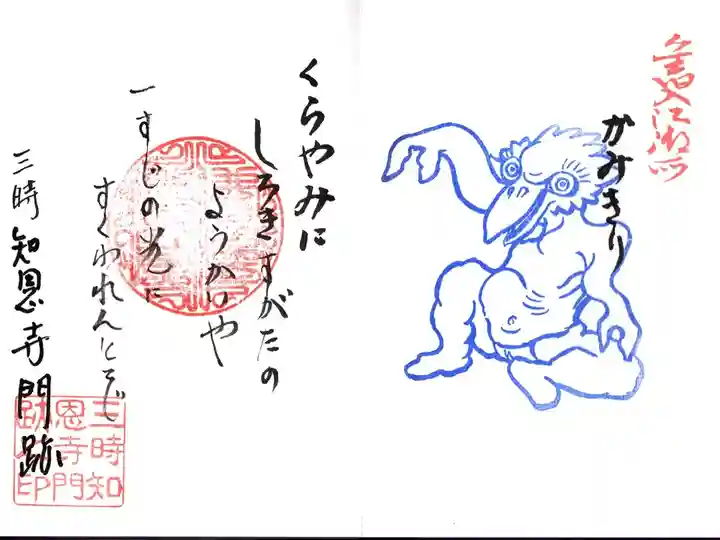 入江御所
かみきり
くらやみに
しろきすがたの
ようかいや
一すじの光に
すくわれんとぞ
三時知恩寺門跡
三時知
恩寺門
跡印